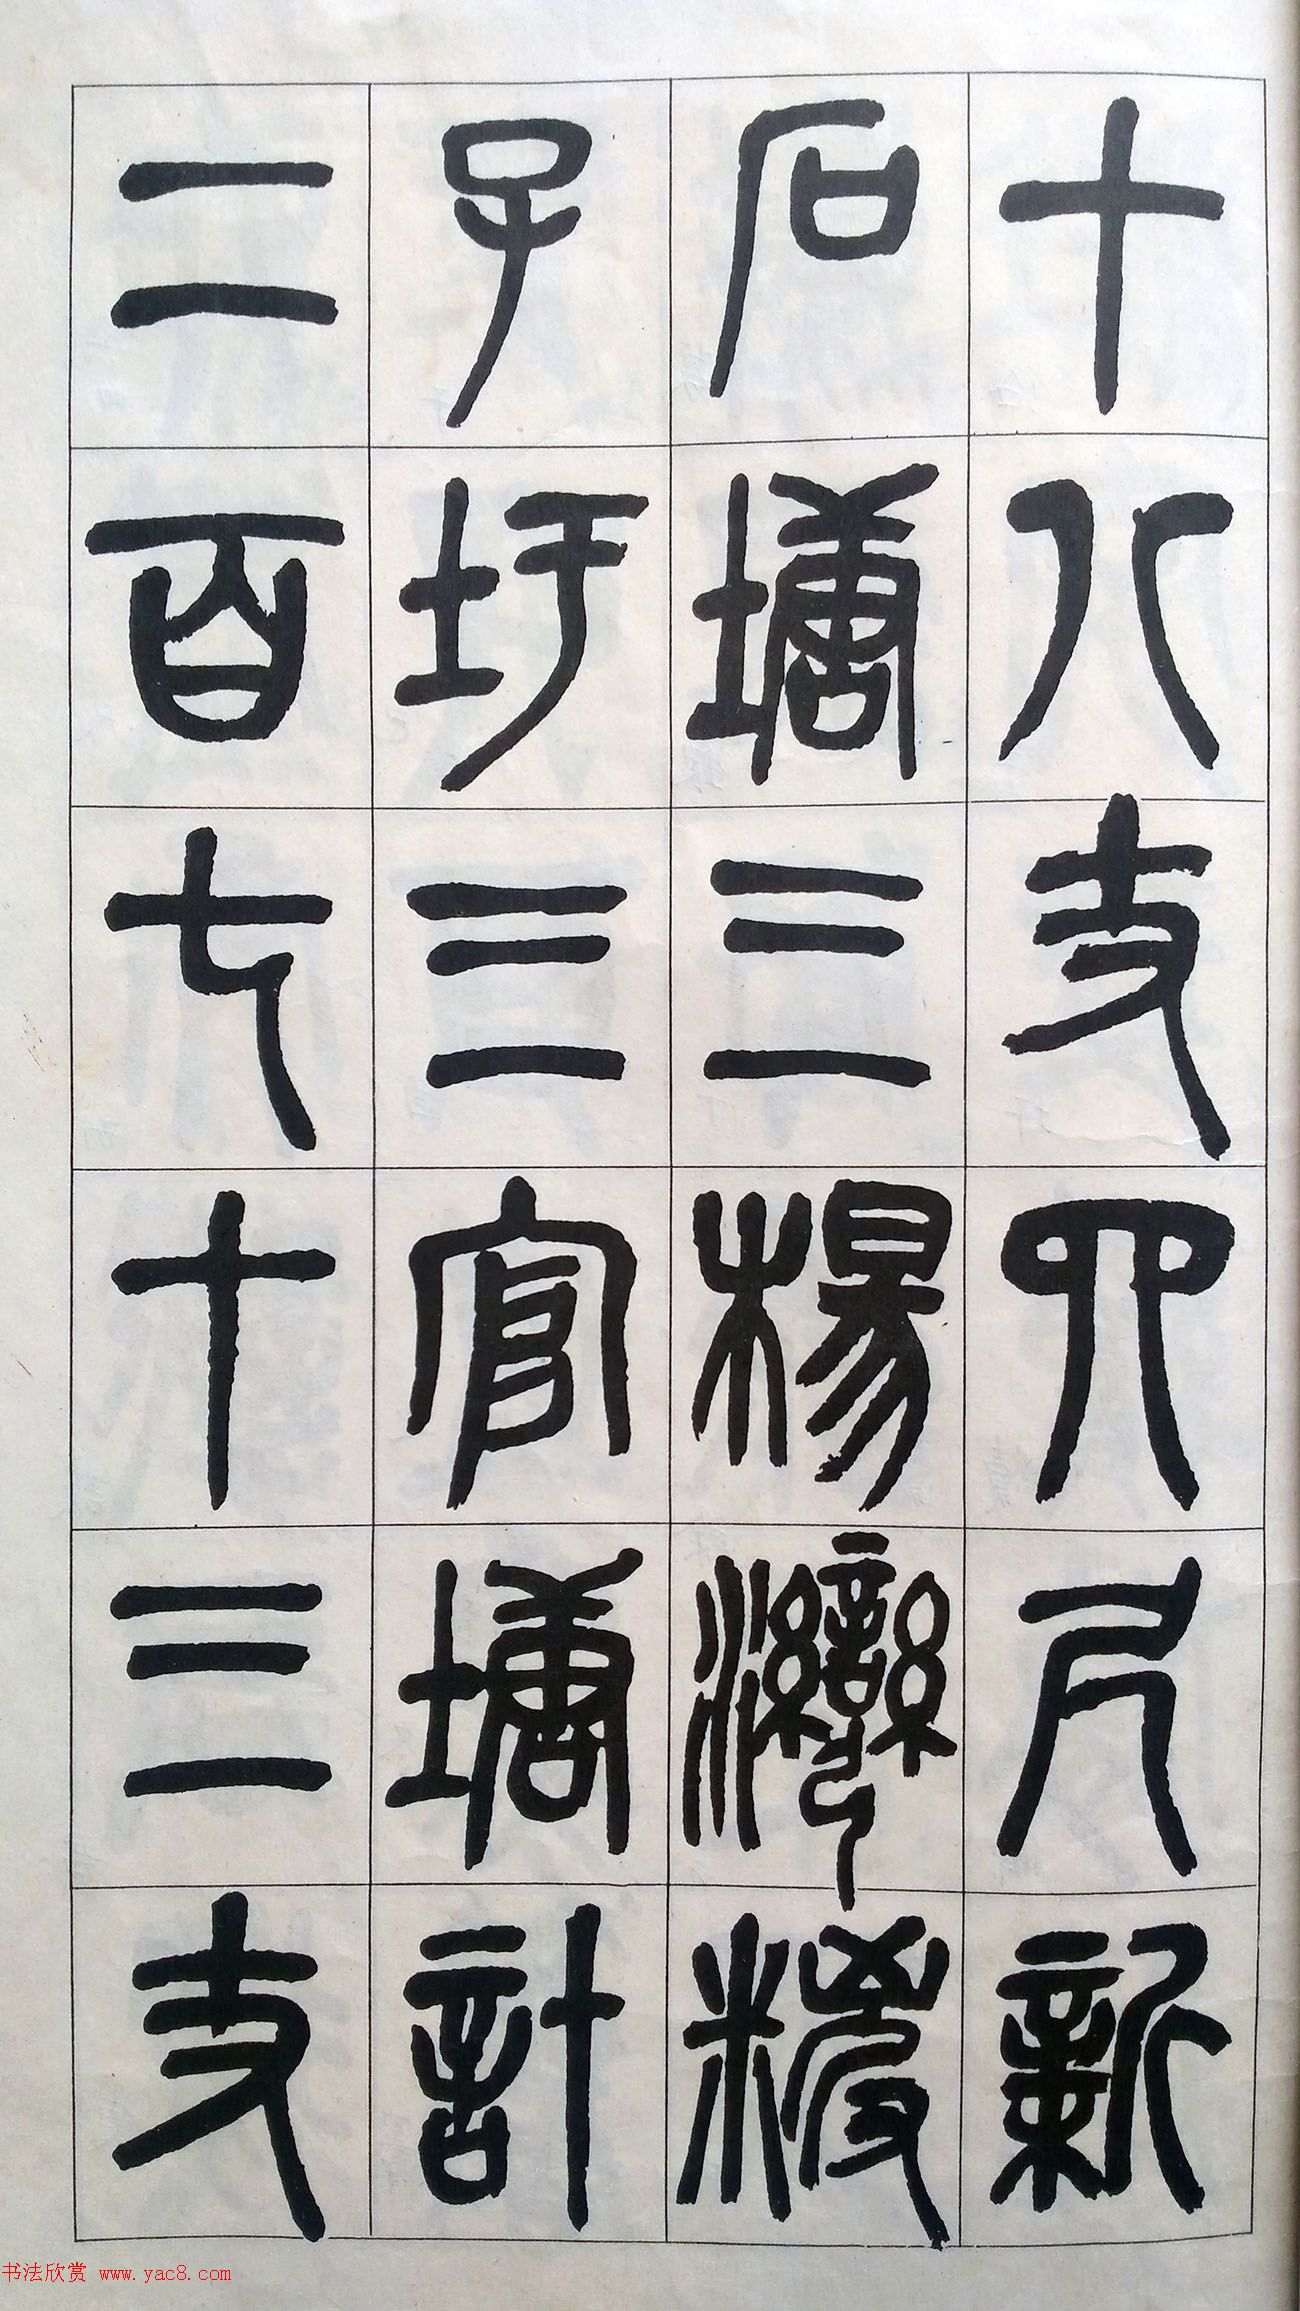 十八丈四尺新
石塘三楊灣糉
子圩三官塘計
二百七十三丈
书法欣赏 www.yac8.com